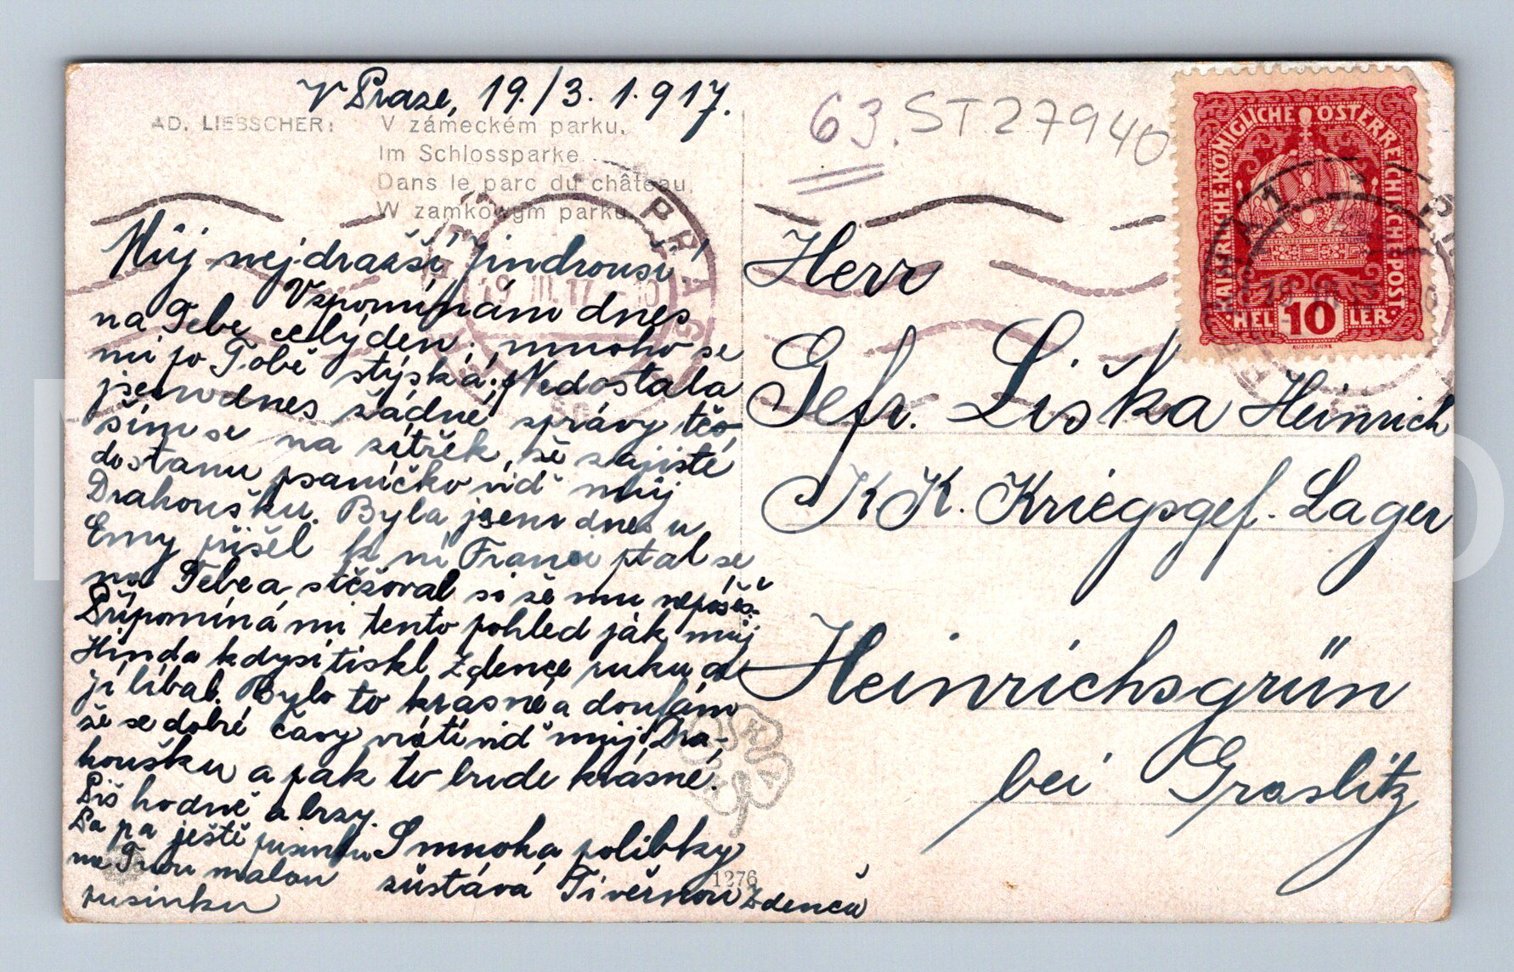 V Praze, 19./3. 1917.
AD. LIEBSCHER: V zámeckém parku.
Im Schlossparke.
Dans le parc du château.
W zamkowym parku.
Můj nejdražší Jindrouši!
Vzpomínám dnes
na Tebe celý den, mnoho se
mi po Tobě stýská. Nedostala
jsem dnes žádné zprávy těo
ším se na zítřek, že zajisté
dostanu psaníčko viď můj
Drahoušku. Byla jsem dnes u
Emy přišel k ní Franci ptal se
na Tebe a stěžoval si že mu nepíšeš.
Připomíná mi tento pohled jak můj
Hinda kdysi tiskl Zdence ruku a
jí líbal. Bylo to krásné a doufám
že se dobré časy vrátí viď můj Dra-
houšku a pak to bude krásné.
Piš hodně a brzy.
Pa pa ještě pusinku
na Tvou malou
pusinku
S mnoha polibky
zůstává Ti věrnou Zdenča
1276
63. ST.27940
KAISERLICHE KÖNIGLICHE ÖSTERREICHISCHE POST
10
HELLER
19.III.17
Herr
Gefr. Liška Heinrich
K.K. Kriegsgef. Lager
Heinrichsgrün
bei Graslitz